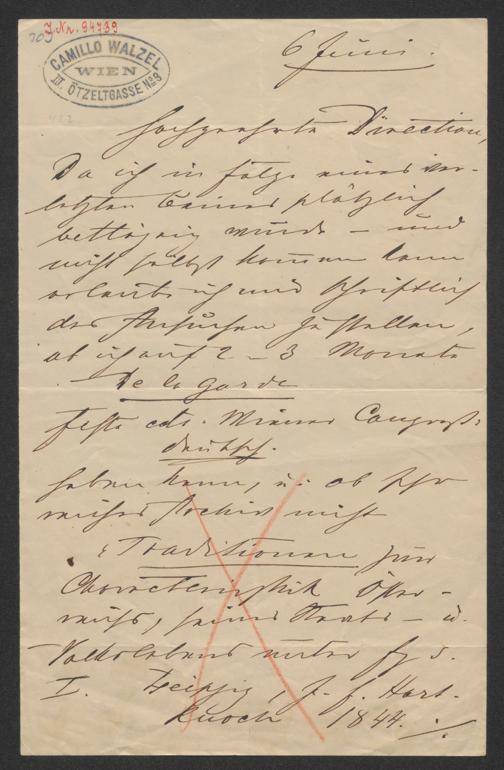 J. Nr. 94739
CAMILLO WALZEL
WIEN
III. ÖTZELTGASSE No 3
6 Juni.
Hochgeehrte Direction,
Da ich in folge eines ver-
letzten Beines plötzlich
bettlägrig wurde – und
nicht selbst kommen kann
erlaube ich mir schriftlich
das Ansuchen zu stellen,
ob ich auf 2 – 3 Monate
De la Garde
Feste etc. Wiener Congress
deutsch.
haben kann, u. ob Ihr
reiches Archiv nicht
"Traditionen zur
Characteristik Öster-
reichs, seines Staats – u.
Volkslebens unter Fz d.
I. Leipzig, J. f. Hart-
knoch 1844.